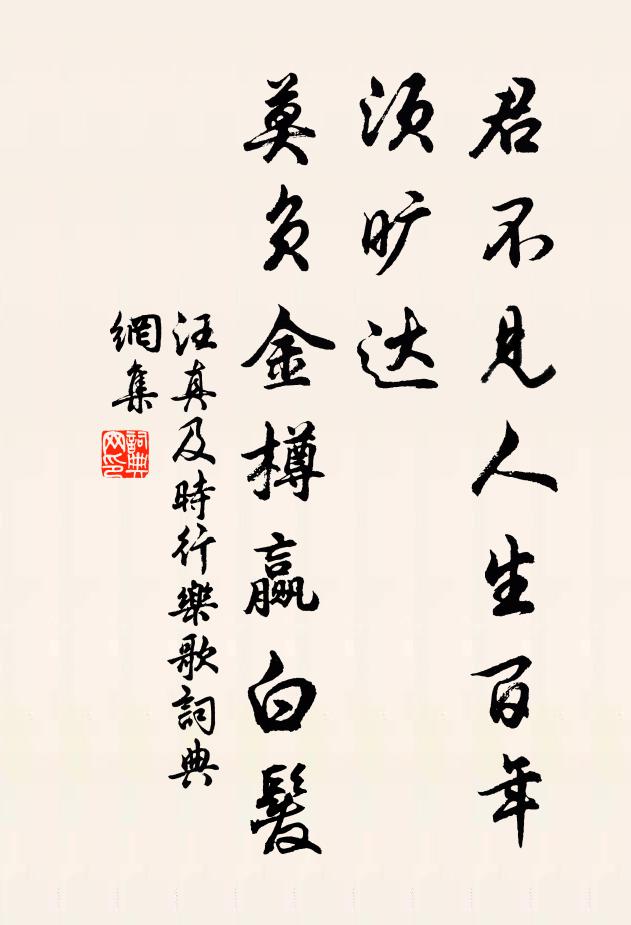 君不见人生百年
须旷达
莫负金樽赢白髮
汪真及時行樂歌詞典
網集
詞典网印